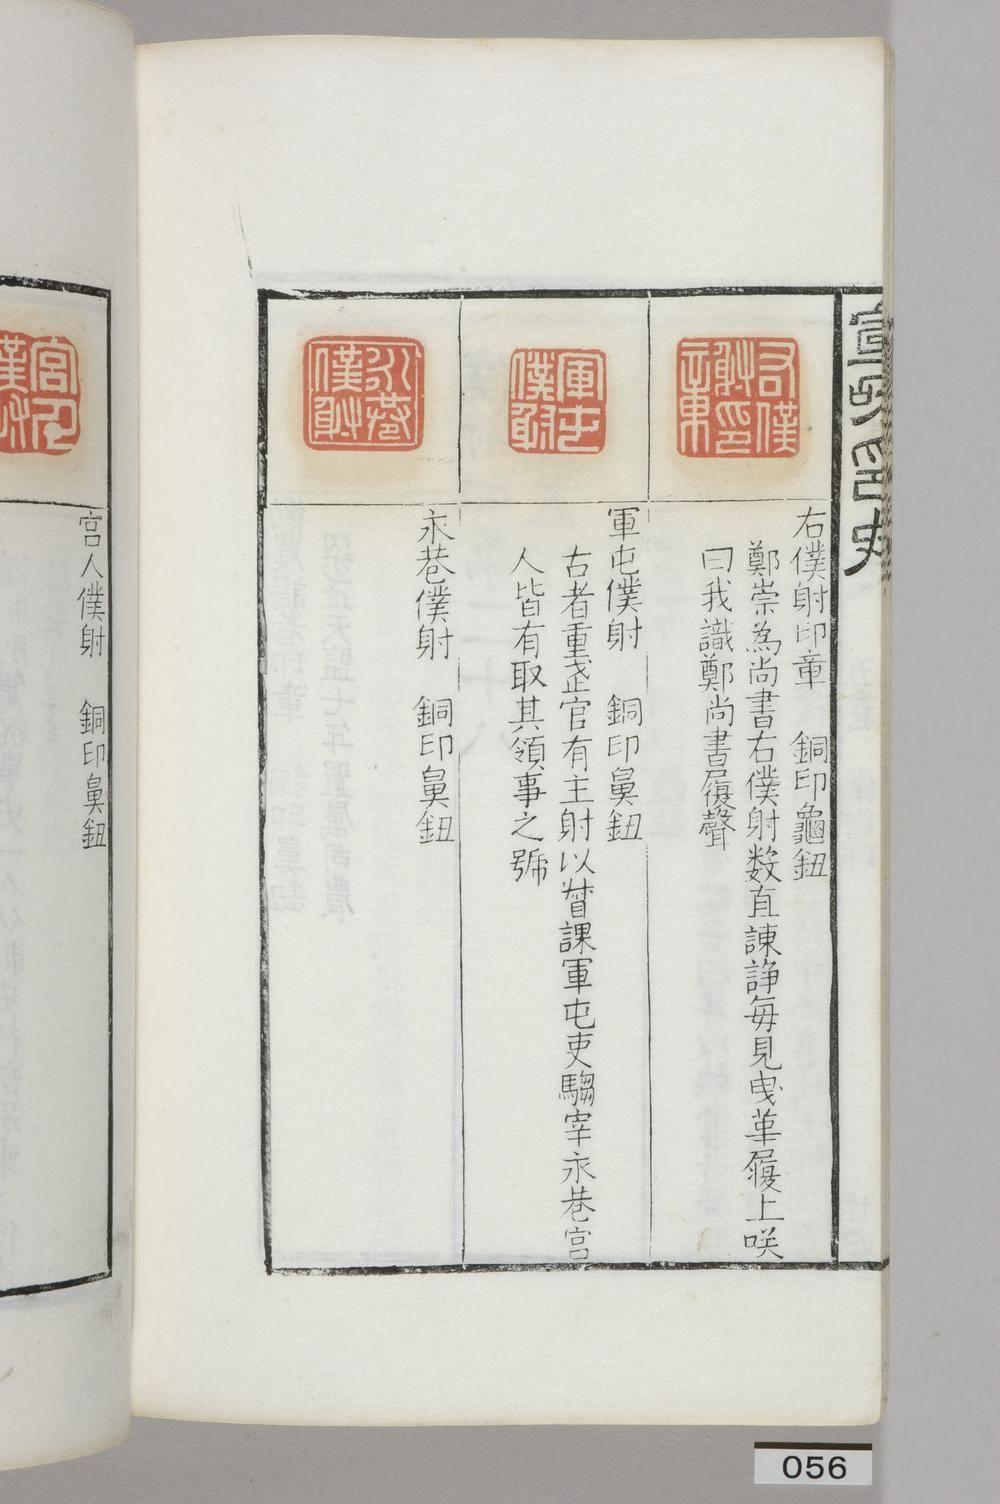 宣和印史
右僕射印章　銅印龜鈕
鄭崇為尚書右僕射数直諌諍每見曳革履上咲
曰我識鄭尚書履聲
軍屯僕射　銅印鼻鈕
古者重武官有主射以督課軍屯吏騶宰永巷宮
人皆有取其領事之號
永巷僕射　銅印鼻鈕
宮人僕射　銅印鼻鈕
右僕射印章
軍屯僕射
永巷僕射
宮人僕射
056